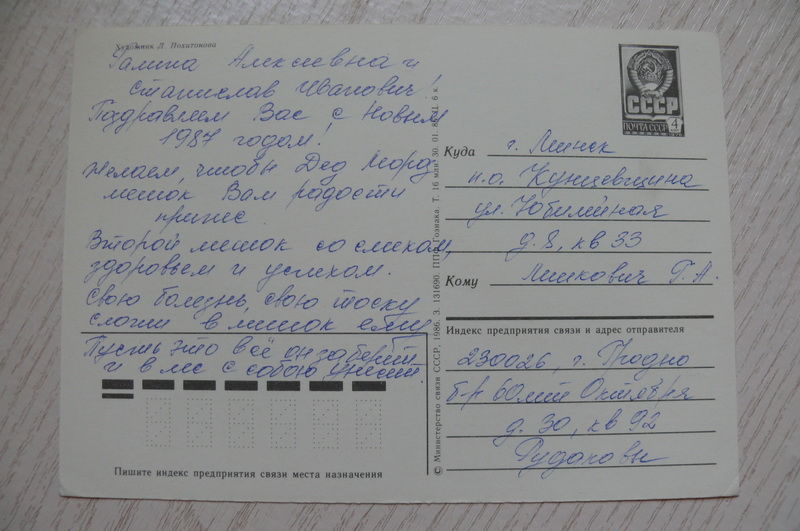 Художник Л. Похитонова
Галина Алексеевна и
Станислав Иванович!
Поздравляем Вас с Новым
1987 годом!
Желаем, чтобы Дед Мороз
мешок Вам радости
принес.
Второй мешок со смехом,
здоровьем и успехом.
Свою болезнь, свою тоску
сложи в мешок ему
Пусть это всё он заберет
и в лес с собою унесет.
Пишите индекс предприятия связи места назначения
© Министерство связи СССР, 1986. З. 131690. ППФ Гознака. Т. 16 млн. 30. 01. 86. Ц. 6 к.
СССР
ПОЧТА СССР 4
Куда г. Минск
п.о. Кунцевщина
ул. Юбилейная
д. 8, кв 33
Кому Мишкович Г. А.
Индекс предприятия связи и адрес отправителя
230026, г. Гродно
б-р 60 лет Октября
д. 30, кв 92
Рудаковы